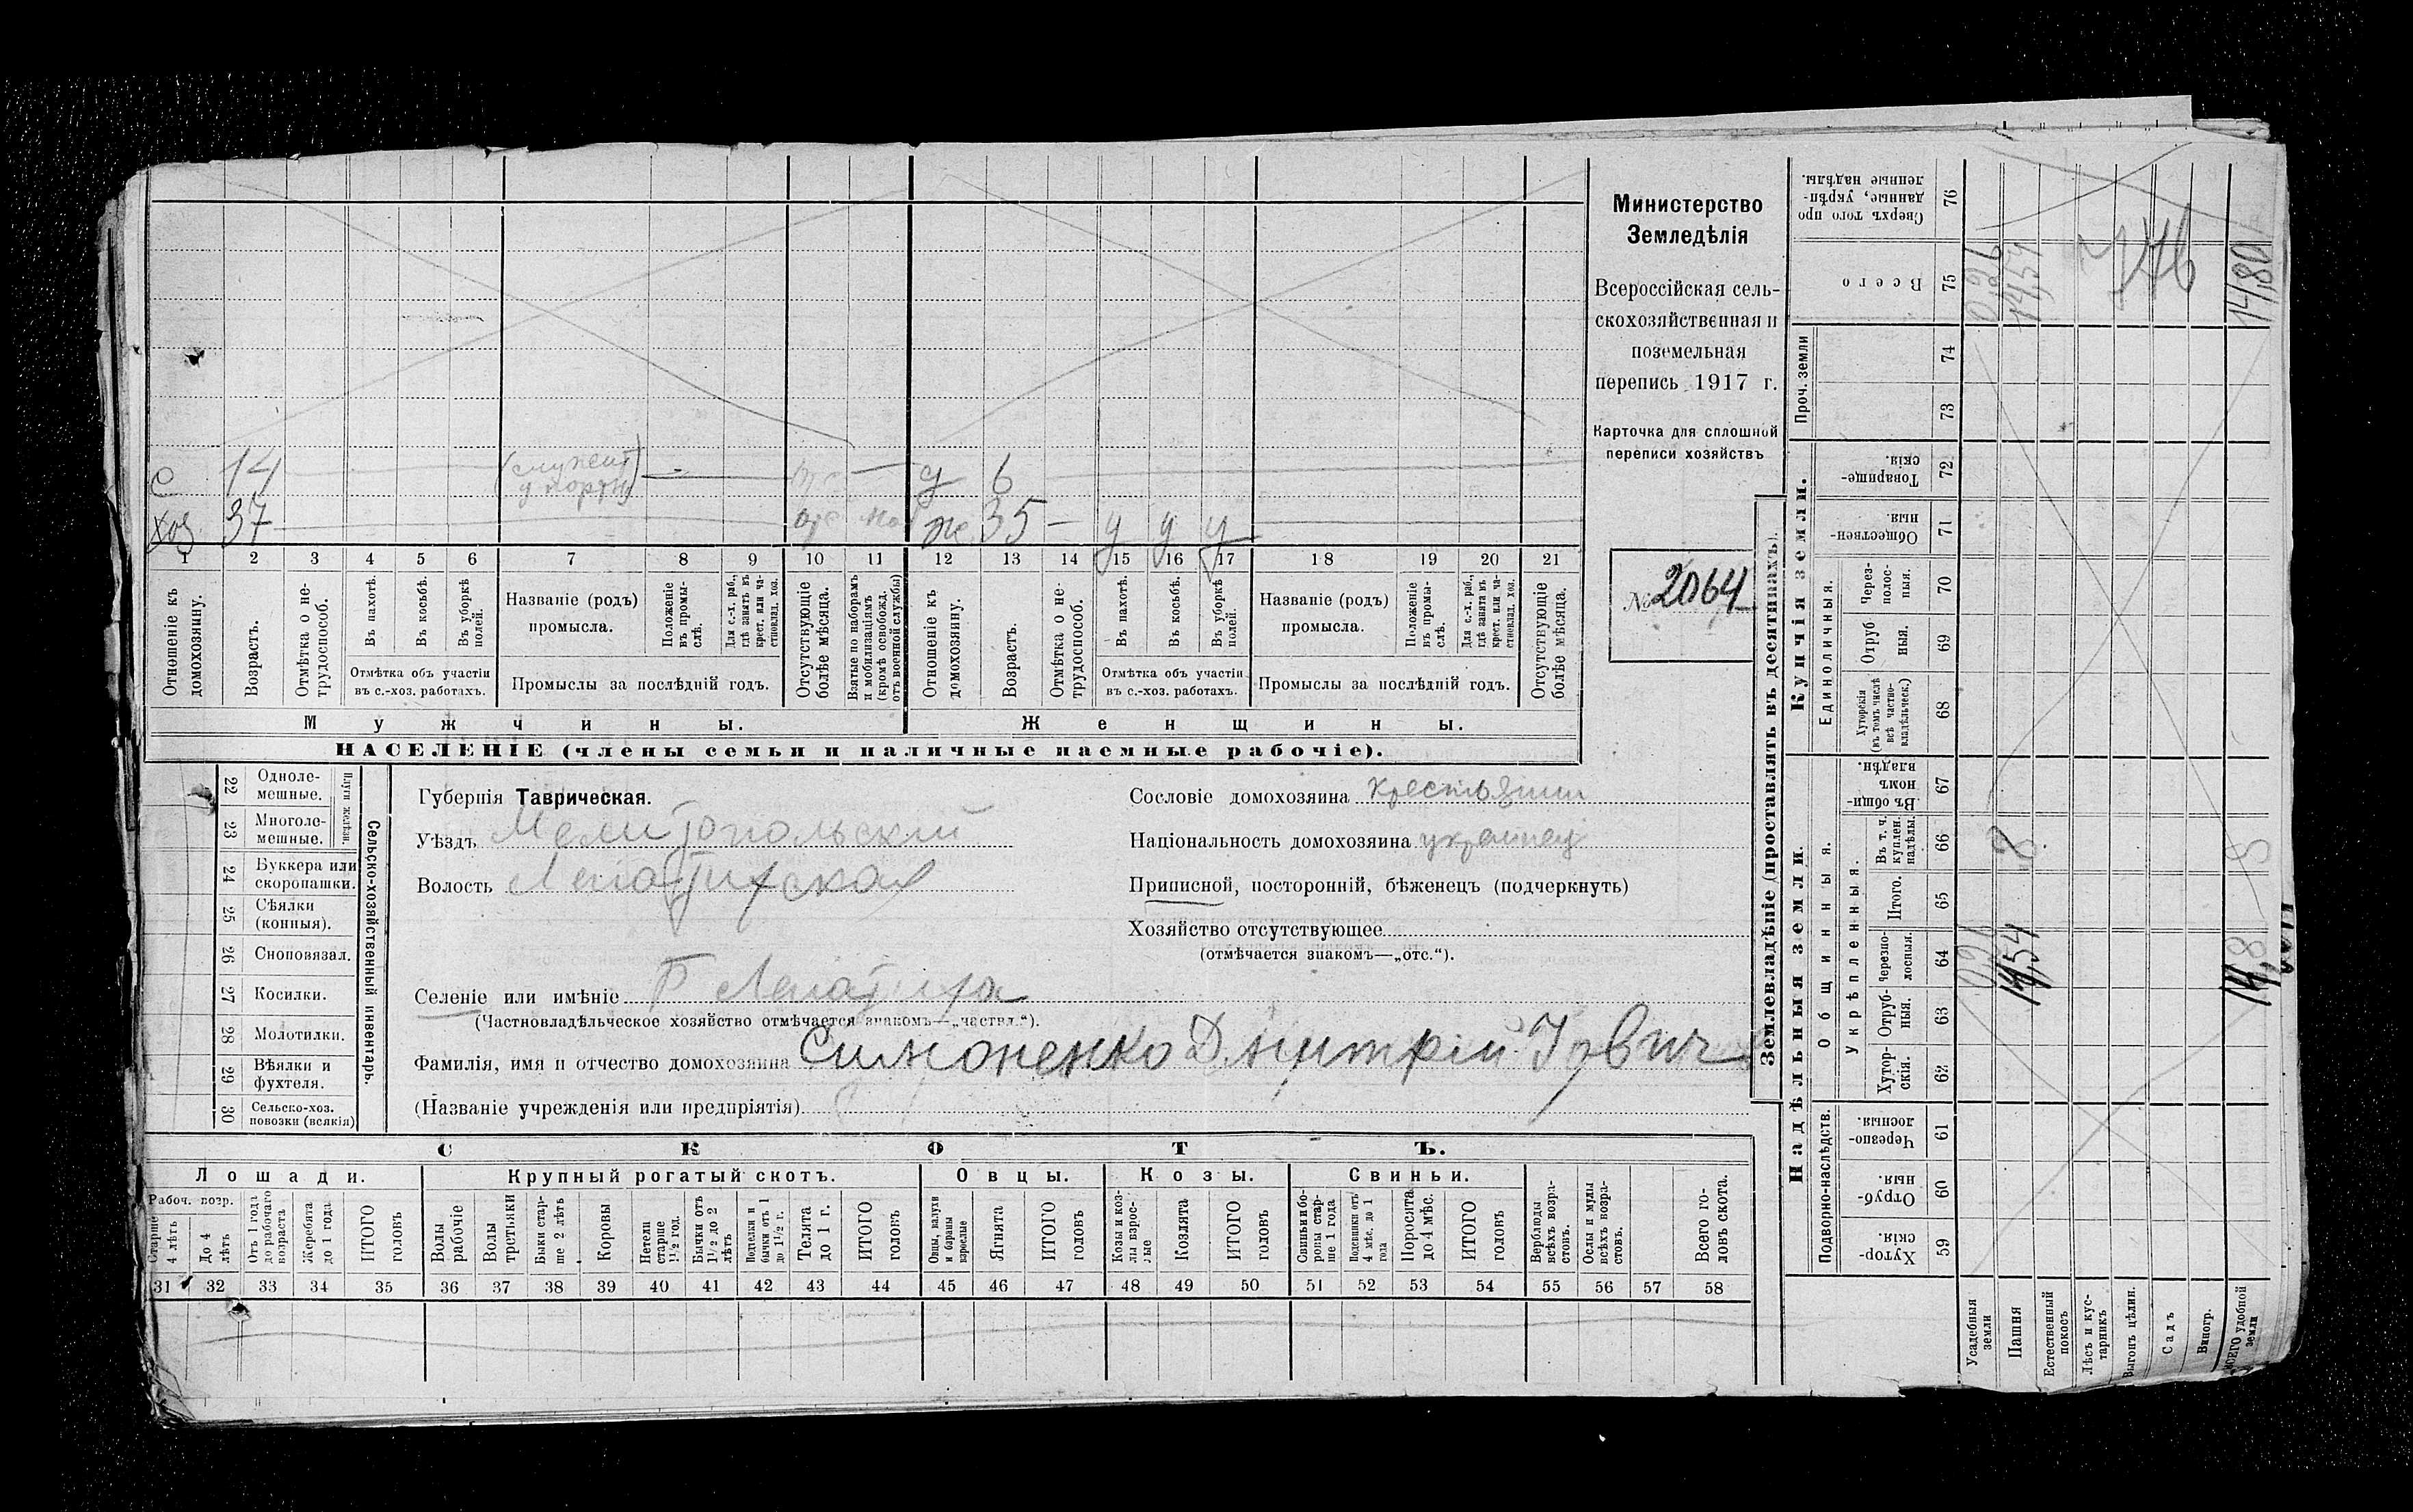 с 14 (служит у портн) — д 6
хоз 37 ж 35 — у у у
1 2 3 4 5 6 7 8 9 10 11 12 13 14 15 16 17 18 19 20 21
Отношеніе къ домохозяину.
Возрастъ.
Отмѣтка о не-
трудоспособ.
Въ пахотѣ.
Въ косьбѣ.
Въ уборкѣ полей.
Отмѣтка объ участіи
въ с.-хоз. работахъ.
Названіе (родъ)
промысла.
Положеніе въ промы-
слѣ.
Для с.-х. раб., гдѣ занятъ въ крест. или ча-
стновлад. хоз.
Промыслы за послѣдній годъ.
Отсутствующіе болѣе мѣсяца.
Взятые по наборамъ и мобилизаціямъ (кромѣ освобожд. отъ военной службы)
Отношеніе къ домохозяину.
Возрастъ.
Отмѣтка о не-
трудоспособ.
Въ пахотѣ.
Въ косьбѣ.
Въ уборкѣ полей.
Отмѣтка объ участіи
въ с.-хоз. работахъ.
Названіе (родъ)
промысла.
Положеніе въ промы-
слѣ.
Для с.-х. раб., гдѣ занята въ крест. или ча-
стновлад. хоз.
Промыслы за послѣдній годъ.
Отсутствующіе болѣе мѣсяца.
Мужчины. Женщины.
НАСЕЛЕНІЕ (члены семьи и наличные наемные рабочіе).
Министерство
Земледѣлія
Всероссійская сель-
скохозяйственная и
поземельная
перепись 1917 г.
Карточка для сплошной
переписи хозяйствъ
№ 2064
Сельско-хозяйственный инвентарь.
Плуги желѣзн.
22 Одноле-
мешные.
23 Многоле-
мешные.
24 Буккера или
скоропашки.
25 Сѣялки
(конныя).
26 Сноповязал.
27 Косилки.
28 Молотилки.
29 Вѣялки и
фухтеля.
30 Сельско-хоз.
повозки (всякія)
Губернія Таврическая.
Уѣздъ Мелитопольский
Волость Лепатихская
Селеніе или имѣніе Б Лепатиха
(Частновладѣльческое хозяйство отмѣчается знакомъ—„частвл.“).
Фамилія, имя и отчество домохозяина Симоненко Дмитрій
(Названіе учрежденія или предпріятія)
Сословіе домохозяина крестьянин
Національность домохозяина украинец
Приписной, посторонній, бѣженецъ (подчеркнуть)
Хозяйство отсутствующее
(отмѣчается знакомъ—„отс.“).
СКОТЪ.
Лошади. Крупный рогатый скотъ. Овцы. Козы. Свиньи.
Рабоч. возр.
Старше 4 лѣтъ
До 4 лѣтъ
Отъ 1 года до рабочаго возраста
Жеребята до 1 года
ИТОГО головъ
Волы рабочіе
Волы третьяки
Быки стар-
ше 2 лѣтъ
Коровы
Нетели старше 1½ год.
Бычки отъ 1½ до 2 лѣтъ
Подтелки и бычки отъ 1 до 1½ г.
Телята до 1 г.
ИТОГО головъ
Овцы, валухи и бараны взрослые
Ягнята
ИТОГО головъ
Козы и коз-
лы взрос-
лые
Козлята
ИТОГО головъ
Свиньи и бо-
ровы стар-
ше 1 года
Подсвинки отъ 4 мѣс. до 1 года
Поросята до 4 мѣс.
ИТОГО головъ
Верблюды всѣхъ возра-
стовъ.
Ослы и мулы всѣхъ возра-
стовъ.
Всего го-
ловъ скота.
31 32 33 34 35 36 37 38 39 40 41 42 43 44 45 46 47 48 49 50 51 52 53 54 55 56 57 58
Землевладѣніе (проставлять въ десятинахъ).
Купчія земли.
Надѣльныя земли.
Проч. земли
Единоличныя.
Общинныя.
Укрѣпленныя.
Подворно-наслѣдств.
76 Сверхъ того про
данные, укрѣп-
ленные надѣлы.
75 Всего 14,54 14,80
74
73
72 Товарище-
скія.
71 Обществен-
ныя.
70 Через-
полос-
ныя.
69 Отруб
ныя.
68 Хуторскія
(въ томъ числѣ
всѣ частно-
владѣльческ.)
67 Въ общин-
номъ
владѣн.
66 Въ т. ч.
куплен.
надѣлы. 8 8
65 Итого.
64 Черезпо-
лосныя. 14,54
63 Отруб-
ныя.
62 Хутор-
скія.
61 Черезпо-
лосныя.
60 Отруб-
ныя.
59 Хутор-
скія.
Усадебныя земли
Пашня
Естественный покосъ
Лѣсъ и кус-
тарникъ
Выгонъ цѣлин.
Садъ
Виногр.
ВСЕГО удобной земли